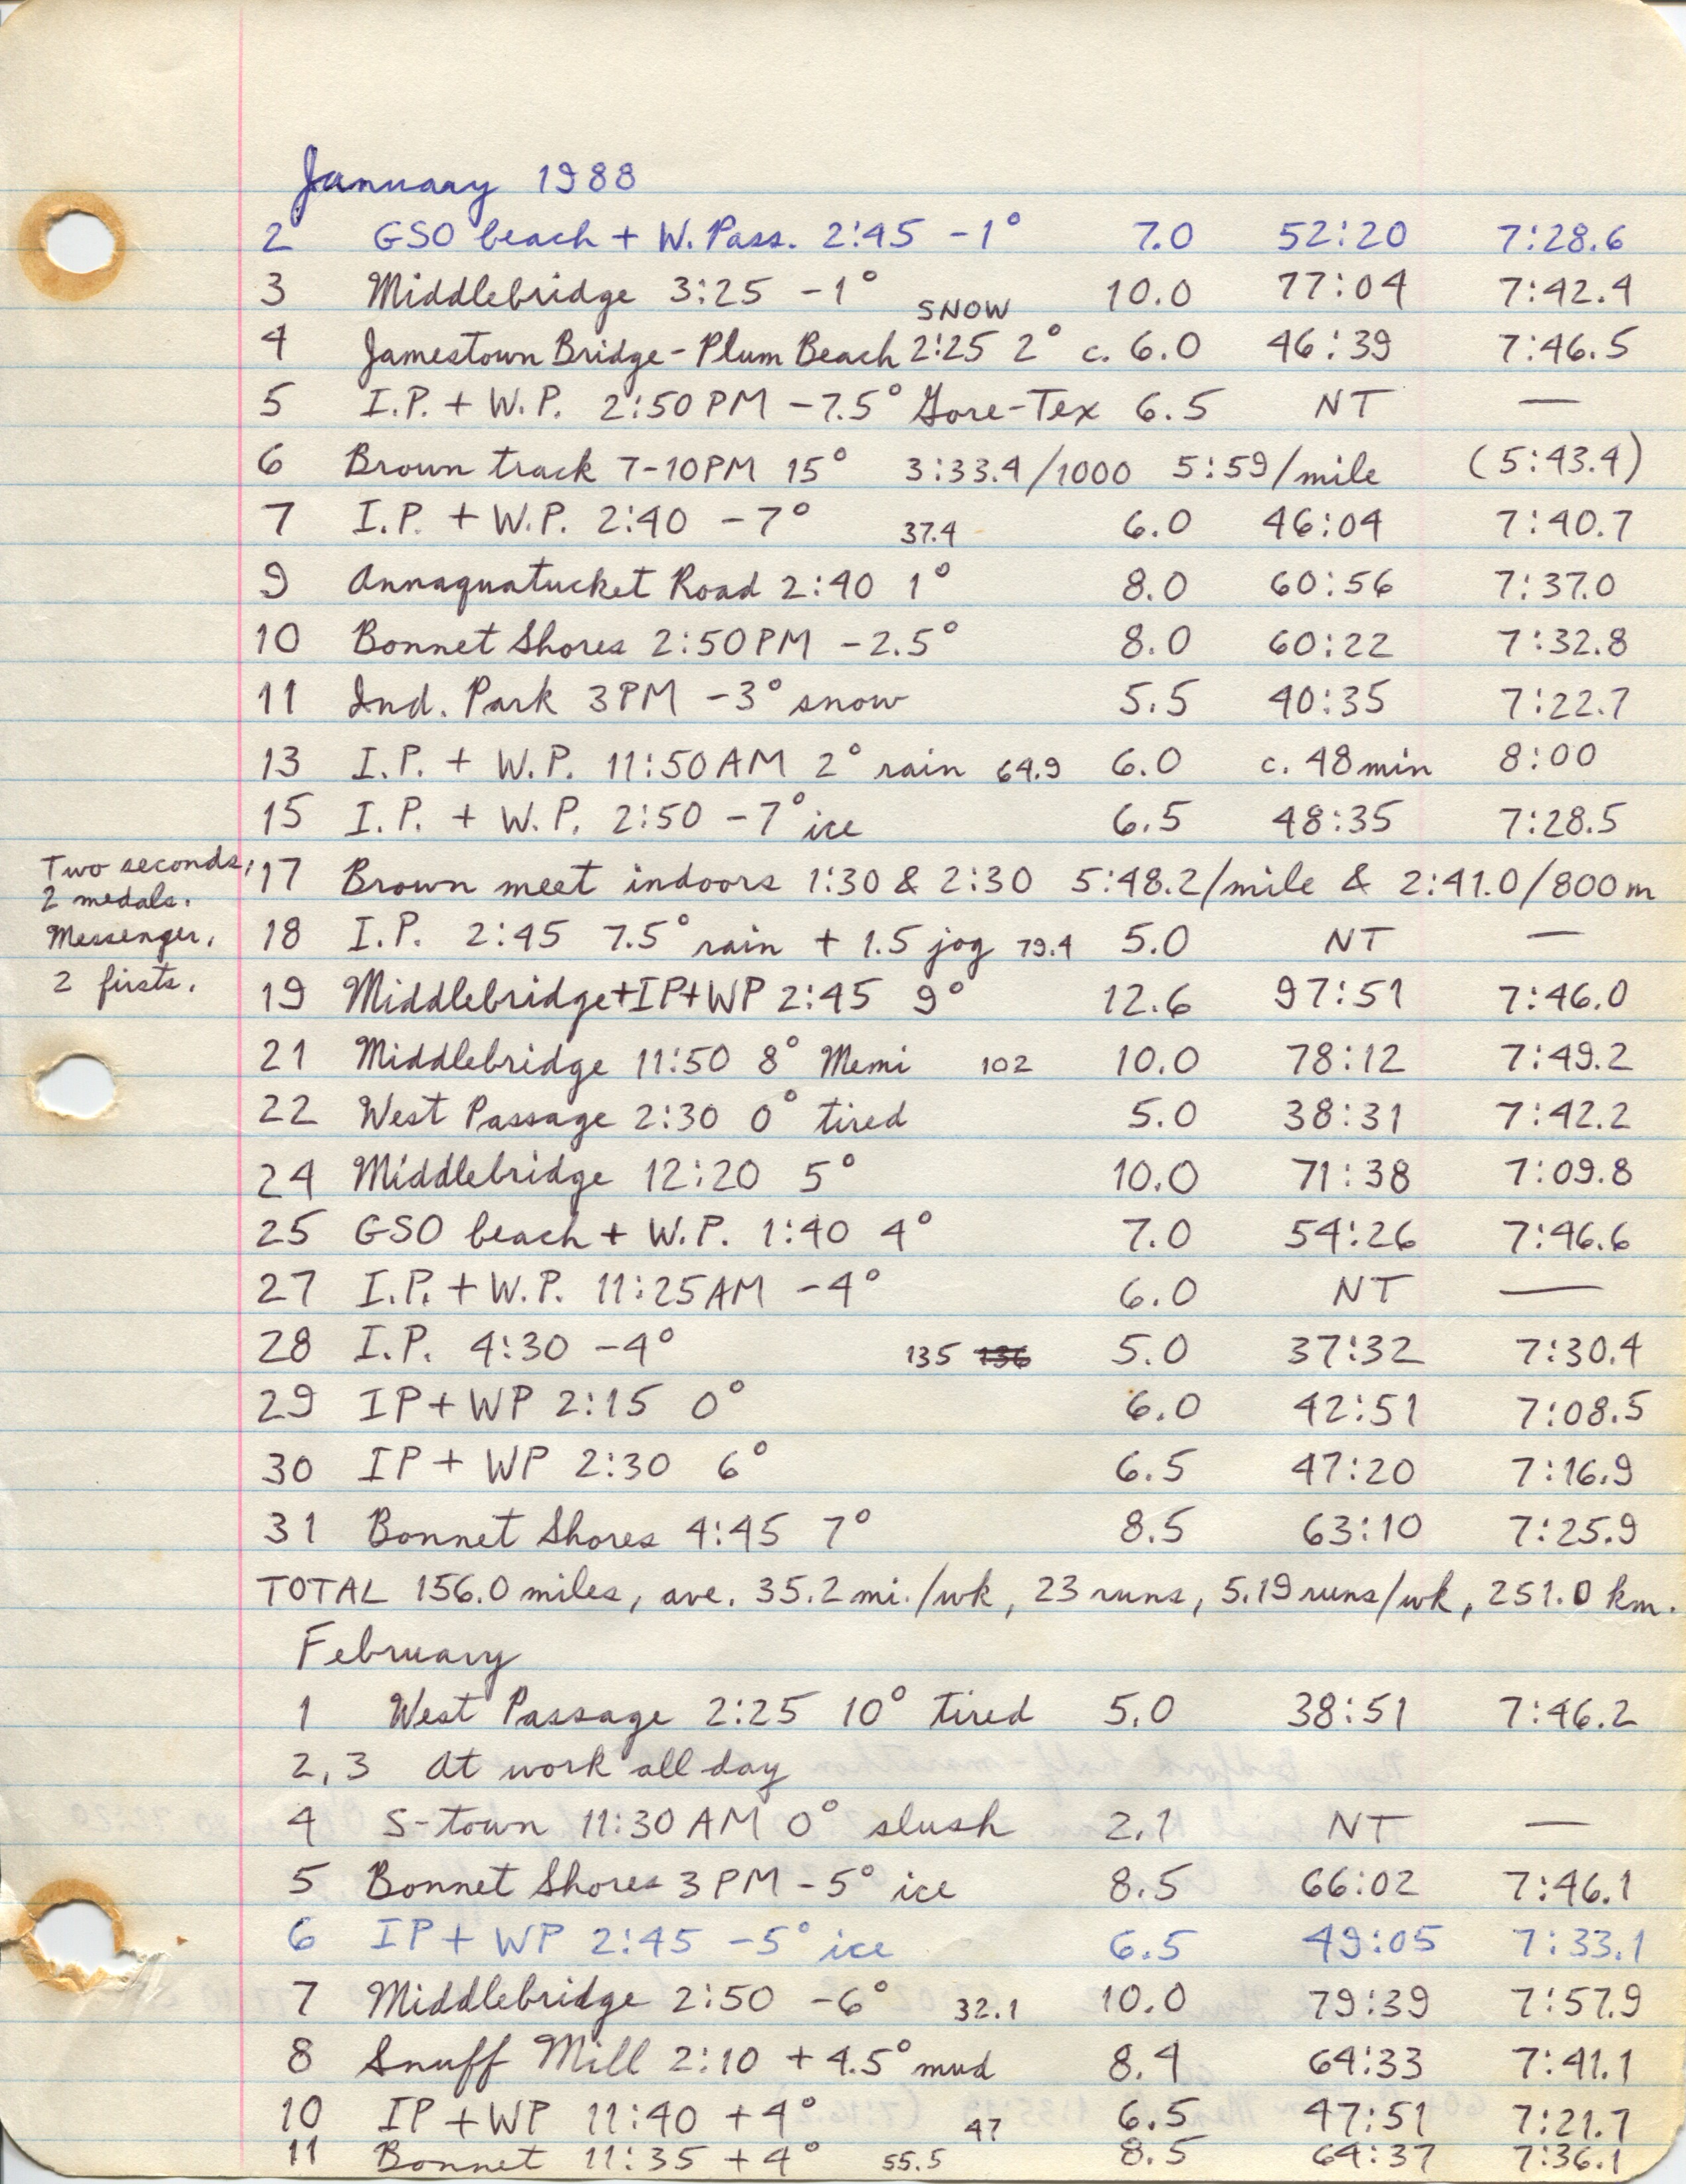 January 1988
2 GSO beach + W. Pass. 2:45 -1° 7.0 52:20 7:28.6
3 Middlebridge 3:25 -1° 10.0 77:04 7:42.4
SNOW
4 Jamestown Bridge - Plum Beach 2:25 2° c. 6.0 46:39 7:46.5
5 I.P. + W.P. 2:50 PM -7.5° Gore-Tex 6.5 NT —
6 Brown track 7-10PM 15° 3:33.4/1000 5:59/mile (5:43.4)
7 I.P. + W.P. 2:40 -7° 37.4 6.0 46:04 7:40.7
9 Annaquatucket Road 2:40 1° 8.0 60:56 7:37.0
10 Bonnet Shores 2:50 PM -2.5° 8.0 60:22 7:32.8
11 Ind. Park 3 PM -3° snow 5.5 40:35 7:22.7
13 I.P. + W.P. 11:50 AM 2° rain 64.9 6.0 c. 48 min 8:00
15 I.P. + W.P. 2:50 -7° ice 6.5 48:35 7:28.5
Two seconds,
2 medals.
Messenger,
2 firsts.
17 Brown meet indoors 1:30 & 2:30 5:48.2/mile & 2:41.0/800 m
18 I.P. 2:45 7.5° rain + 1.5 jog 79.4 5.0 NT —
19 Middlebridge+IP+WP 2:45 9° 12.6 97:51 7:46.0
21 Middlebridge 11:50 8° Memi 102 10.0 78:12 7:49.2
22 West Passage 2:30 0° tired 5.0 38:31 7:42.2
24 Middlebridge 12:20 5° 10.0 71:38 7:09.8
25 GSO beach + W.P. 1:40 4° 7.0 54:26 7:46.6
27 I.P. + W.P. 11:25 AM -4° 6.0 NT —
28 I.P. 4:30 -4° 135 136 5.0 37:32 7:30.4
29 IP + WP 2:15 0° 6.0 42:51 7:08.5
30 IP + WP 2:30 6° 6.5 47:20 7:16.9
31 Bonnet Shores 4:45 7° 8.5 63:10 7:25.9
TOTAL 156.0 miles, ave. 35.2 mi./wk, 23 runs, 5.19 runs/wk, 251.0 km.
February
1 West Passage 2:25 10° tired 5.0 38:51 7:46.2
2, 3 At work all day
4 S-town 11:30 AM 0° slush 2.1 NT —
5 Bonnet Shores 3 PM -5° ice 8.5 66:02 7:46.1
6 IP + WP 2:45 -5° ice 6.5 49:05 7:33.1
7 Middlebridge 2:50 -6° 32.1 10.0 79:39 7:57.9
8 Snuff Mill 2:10 +4.5° mud 8.4 64:33 7:41.1
10 IP + WP 11:40 +4° 47 6.5 47:51 7:21.7
11 Bonnet 11:35 +4° 55.5 8.5 64:37 7:36.1